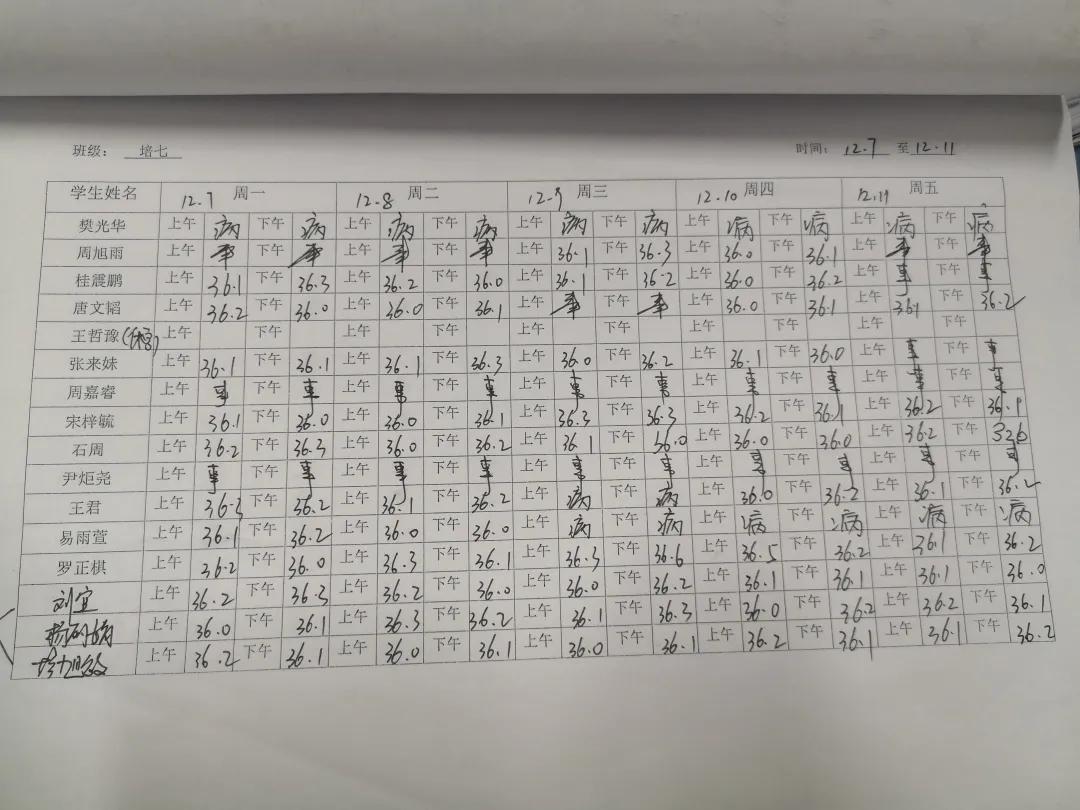 班级： 培七 时间： 12.7 至 12.11
学生姓名 12.7 周一 12.8 周二 12.9 周三 12.10 周四 12.11 周五
樊光华 上午 病 下午 病 上午 病 下午 病 上午 病 下午 病 上午 病 下午 病 上午 病 下午 病
周旭雨 上午 事 下午 事 上午 事 下午 事 上午 36.1 下午 36.3 上午 36.0 下午 36.1 上午 事 下午 事
桂震鹏 上午 36.1 下午 36.3 上午 36.2 下午 36.0 上午 36.1 下午 36.2 上午 36.0 下午 36.2 上午 事 下午 事
唐文韬 上午 36.2 下午 36.0 上午 36.0 下午 36.1 上午 事 下午 事 上午 36.0 下午 36.1 上午 36.1 下午 36.2
王哲豫 上午 下午 上午 下午 上午 下午 上午 下午 上午 下午
张来妹 上午 36.1 下午 36.1 上午 36.1 下午 36.3 上午 36.0 下午 36.2 上午 36.1 下午 36.0 上午 事 下午 事
周嘉睿 上午 事 下午 事 上午 事 下午 事 上午 事 下午 事 上午 事 下午 事 上午 事 下午 事
宋梓毓 上午 36.1 下午 36.0 上午 36.0 下午 36.1 上午 36.3 下午 36.3 上午 36.2 下午 36.1 上午 36.2 下午 36.1
石周 上午 36.2 下午 36.3 上午 36.0 下午 36.2 上午 36.1 下午 36.0 上午 36.0 下午 36.0 上午 36.2 下午
尹炬尧 上午 事 下午 事 上午 事 下午 事 上午 事 下午 事 上午 事 下午 事 上午 事 下午 事
王君 上午 36.3 下午 36.2 上午 36.1 下午 36.2 上午 病 下午 病 上午 36.0 下午 36.2 上午 36.1 下午 36.2
易雨萱 上午 36.1 下午 36.2 上午 36.0 下午 36.0 上午 病 下午 病 上午 病 下午 病 上午 病 下午 病
罗正棋 上午 36.2 下午 36.0 上午 36.3 下午 36.1 上午 36.3 下午 36.6 上午 36.5 下午 36.2 上午 36.1 下午 36.2
刘宜 上午 36.2 下午 36.3 上午 36.2 下午 36.0 上午 36.0 下午 36.2 上午 36.1 下午 36.1 上午 36.1 下午 36.0
上午 36.0 下午 36.1 上午 36.3 下午 36.2 上午 36.1 下午 36.3 上午 36.0 下午 36.2 上午 36.2 下午 36.1
上午 36.2 下午 36.1 上午 36.0 下午 36.1 上午 36.0 下午 36.1 上午 36.2 下午 36.1 上午 36.1 下午 36.2